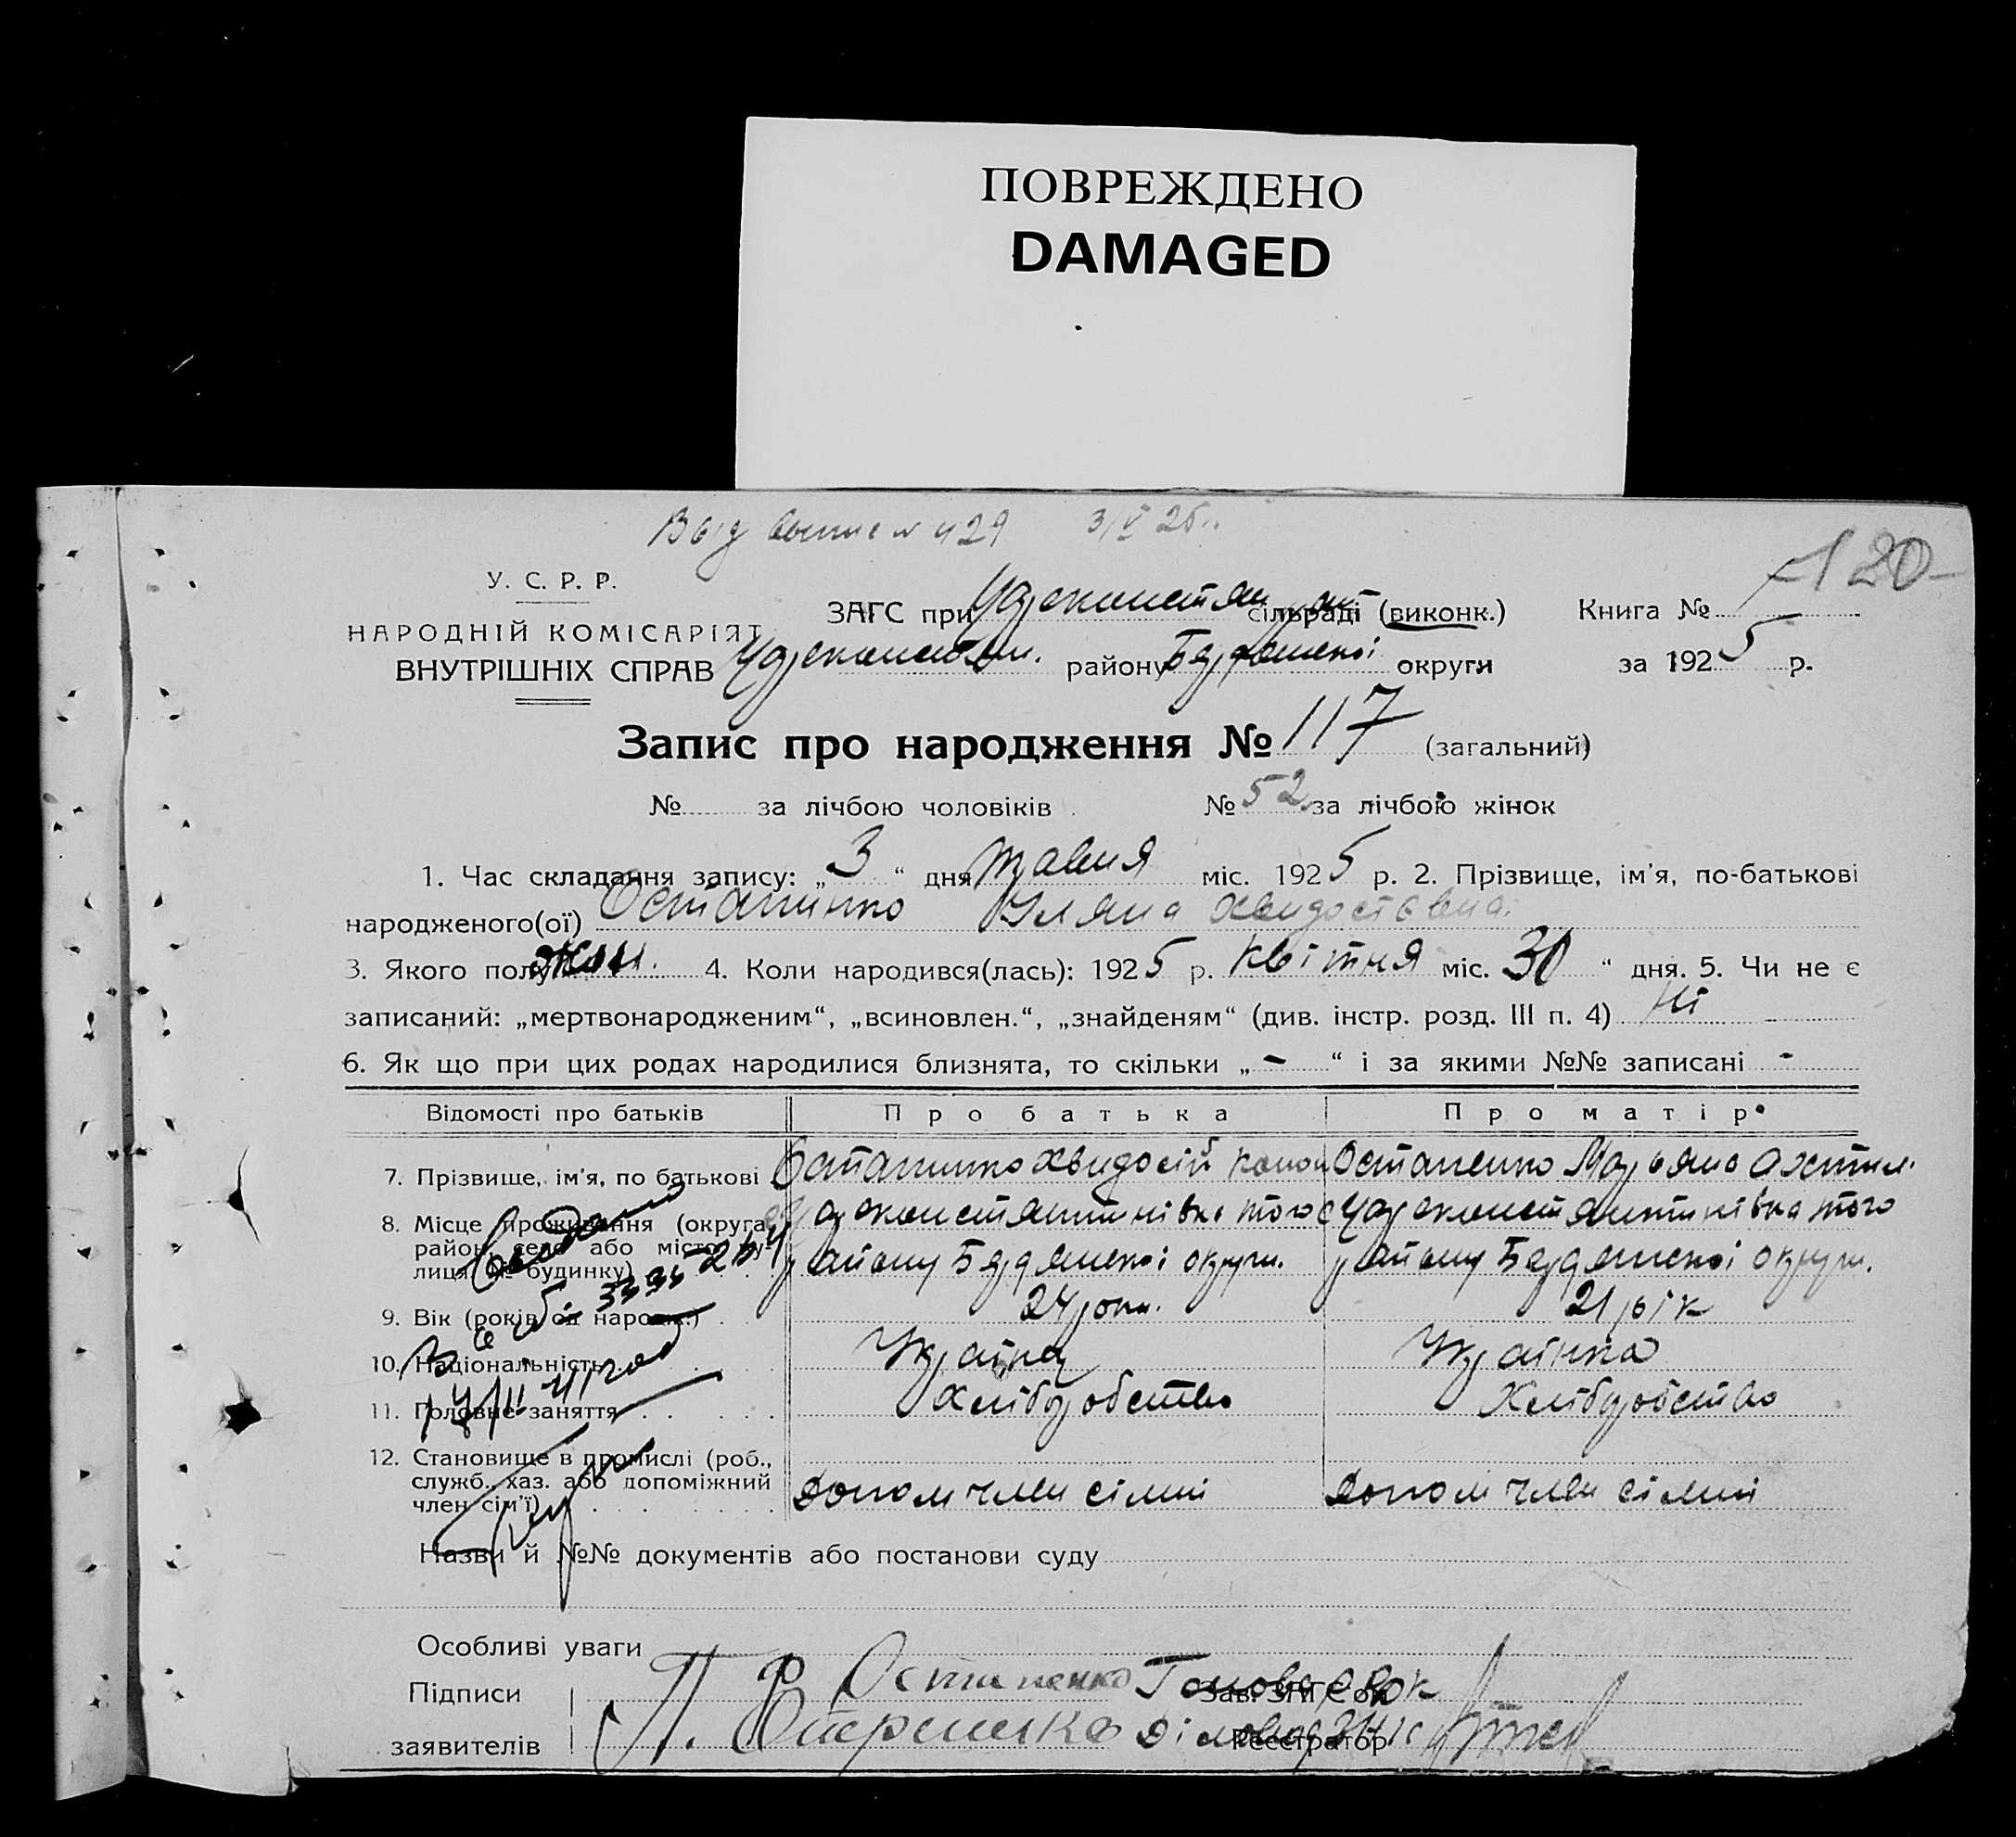 ПОВРЕЖДЕНО
DAMAGED
429 3/V 25
120
У. С. Р. Р.
НАРОДНІЙ КОМІСАРІЯТ
ВНУТРІШНІХ СПРАВ
ЗАГС при Цареконстян сільраді (виконк.) Книга №
Цареконстян. району Бердянської округи за 1925 р.
Запис про народження № 117 (загальний)
№ за лічбою чоловіків № 52 за лічбою жінок
1. Час складання запису: „3“ дня травня міс. 1925 р. 2. Прізвище, ім'я, по-батькові
народженого(ої) Остапинко Уляна
3. Якого полу жін. 4. Коли народився(лась): 1925 р. квітня міс. 30 “ дня. 5. Чи не є
записаний: „мертвонародженим“, „всиновлен.“, „знайденям“ (див. інстр. розд. III п. 4) ні
6. Як що при цих родах народилися близнята, то скільки „ - “ і за якими №№ записані -
Відомості про батьків Про батька Про матір
7. Прізвище, ім'я, по батькові Остапинко Хвидосій Остапенко Марьяна
8. Місце проживання (округа, район, село або місто, ву-лиця, № будинку) Цареконстянтинівка того району Бердянської округи. Цареконстянтинівка того району Бердянської округи.
9. Вік (років од народж.) 24 роки. 21 рік
10. Національність Українец Українка
11. Головне заняття Хліборобство Хліборобство
12. Становище в промислі (роб., служб., хаз. або допоміжний член сім'ї) допом член сімьі допом член сімьі
Назви й №№ документів або постанови суду
Особливі уваги
Підписи Ф Остапенко Голова РВК Зав. ЗАГС'ом
заявителів Діловод ЗАГС Реєстратор